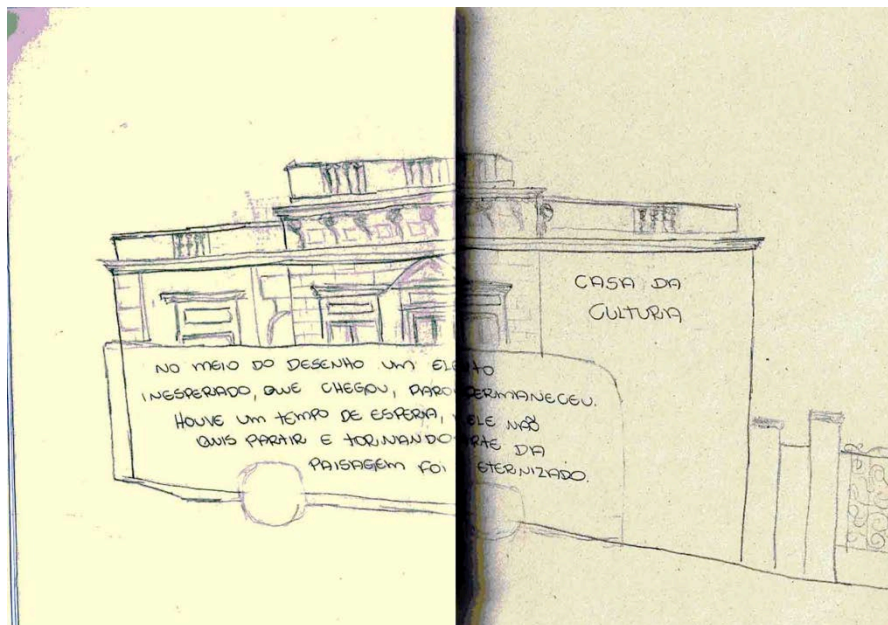 CASA DA
CULTURA
NO MEIO DO DESENHO UM
INESPERADO, QUE CHEGOU, PERMANECEU.
HOUVE UM TEMPO DE ESPERA, ELE NÃO
QUIS PARTIR E TORNANDO DA
PAISAGEM FOI ETERNIZADO.